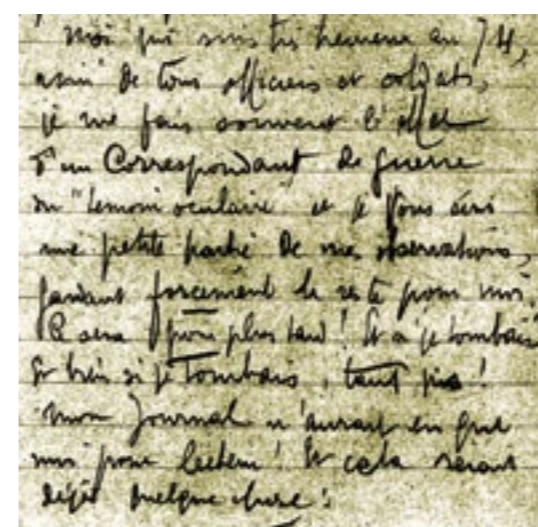 moi qui suis très heureux au 74,
ami de tous officiers et soldats,
je me fais souvent l'effet
d'un Correspondant de guerre
ou "témoin oculaire" et je vous écris
une petite partie de mes observations,
gardant forcément le reste pour moi.
Ce sera pour plus tard! Et si je tombais
Et bien si je tombais, tant pis!
Mon Journal n'aurait eu que
moi pour lecteur! Et cela serait
déjà quelque chose!